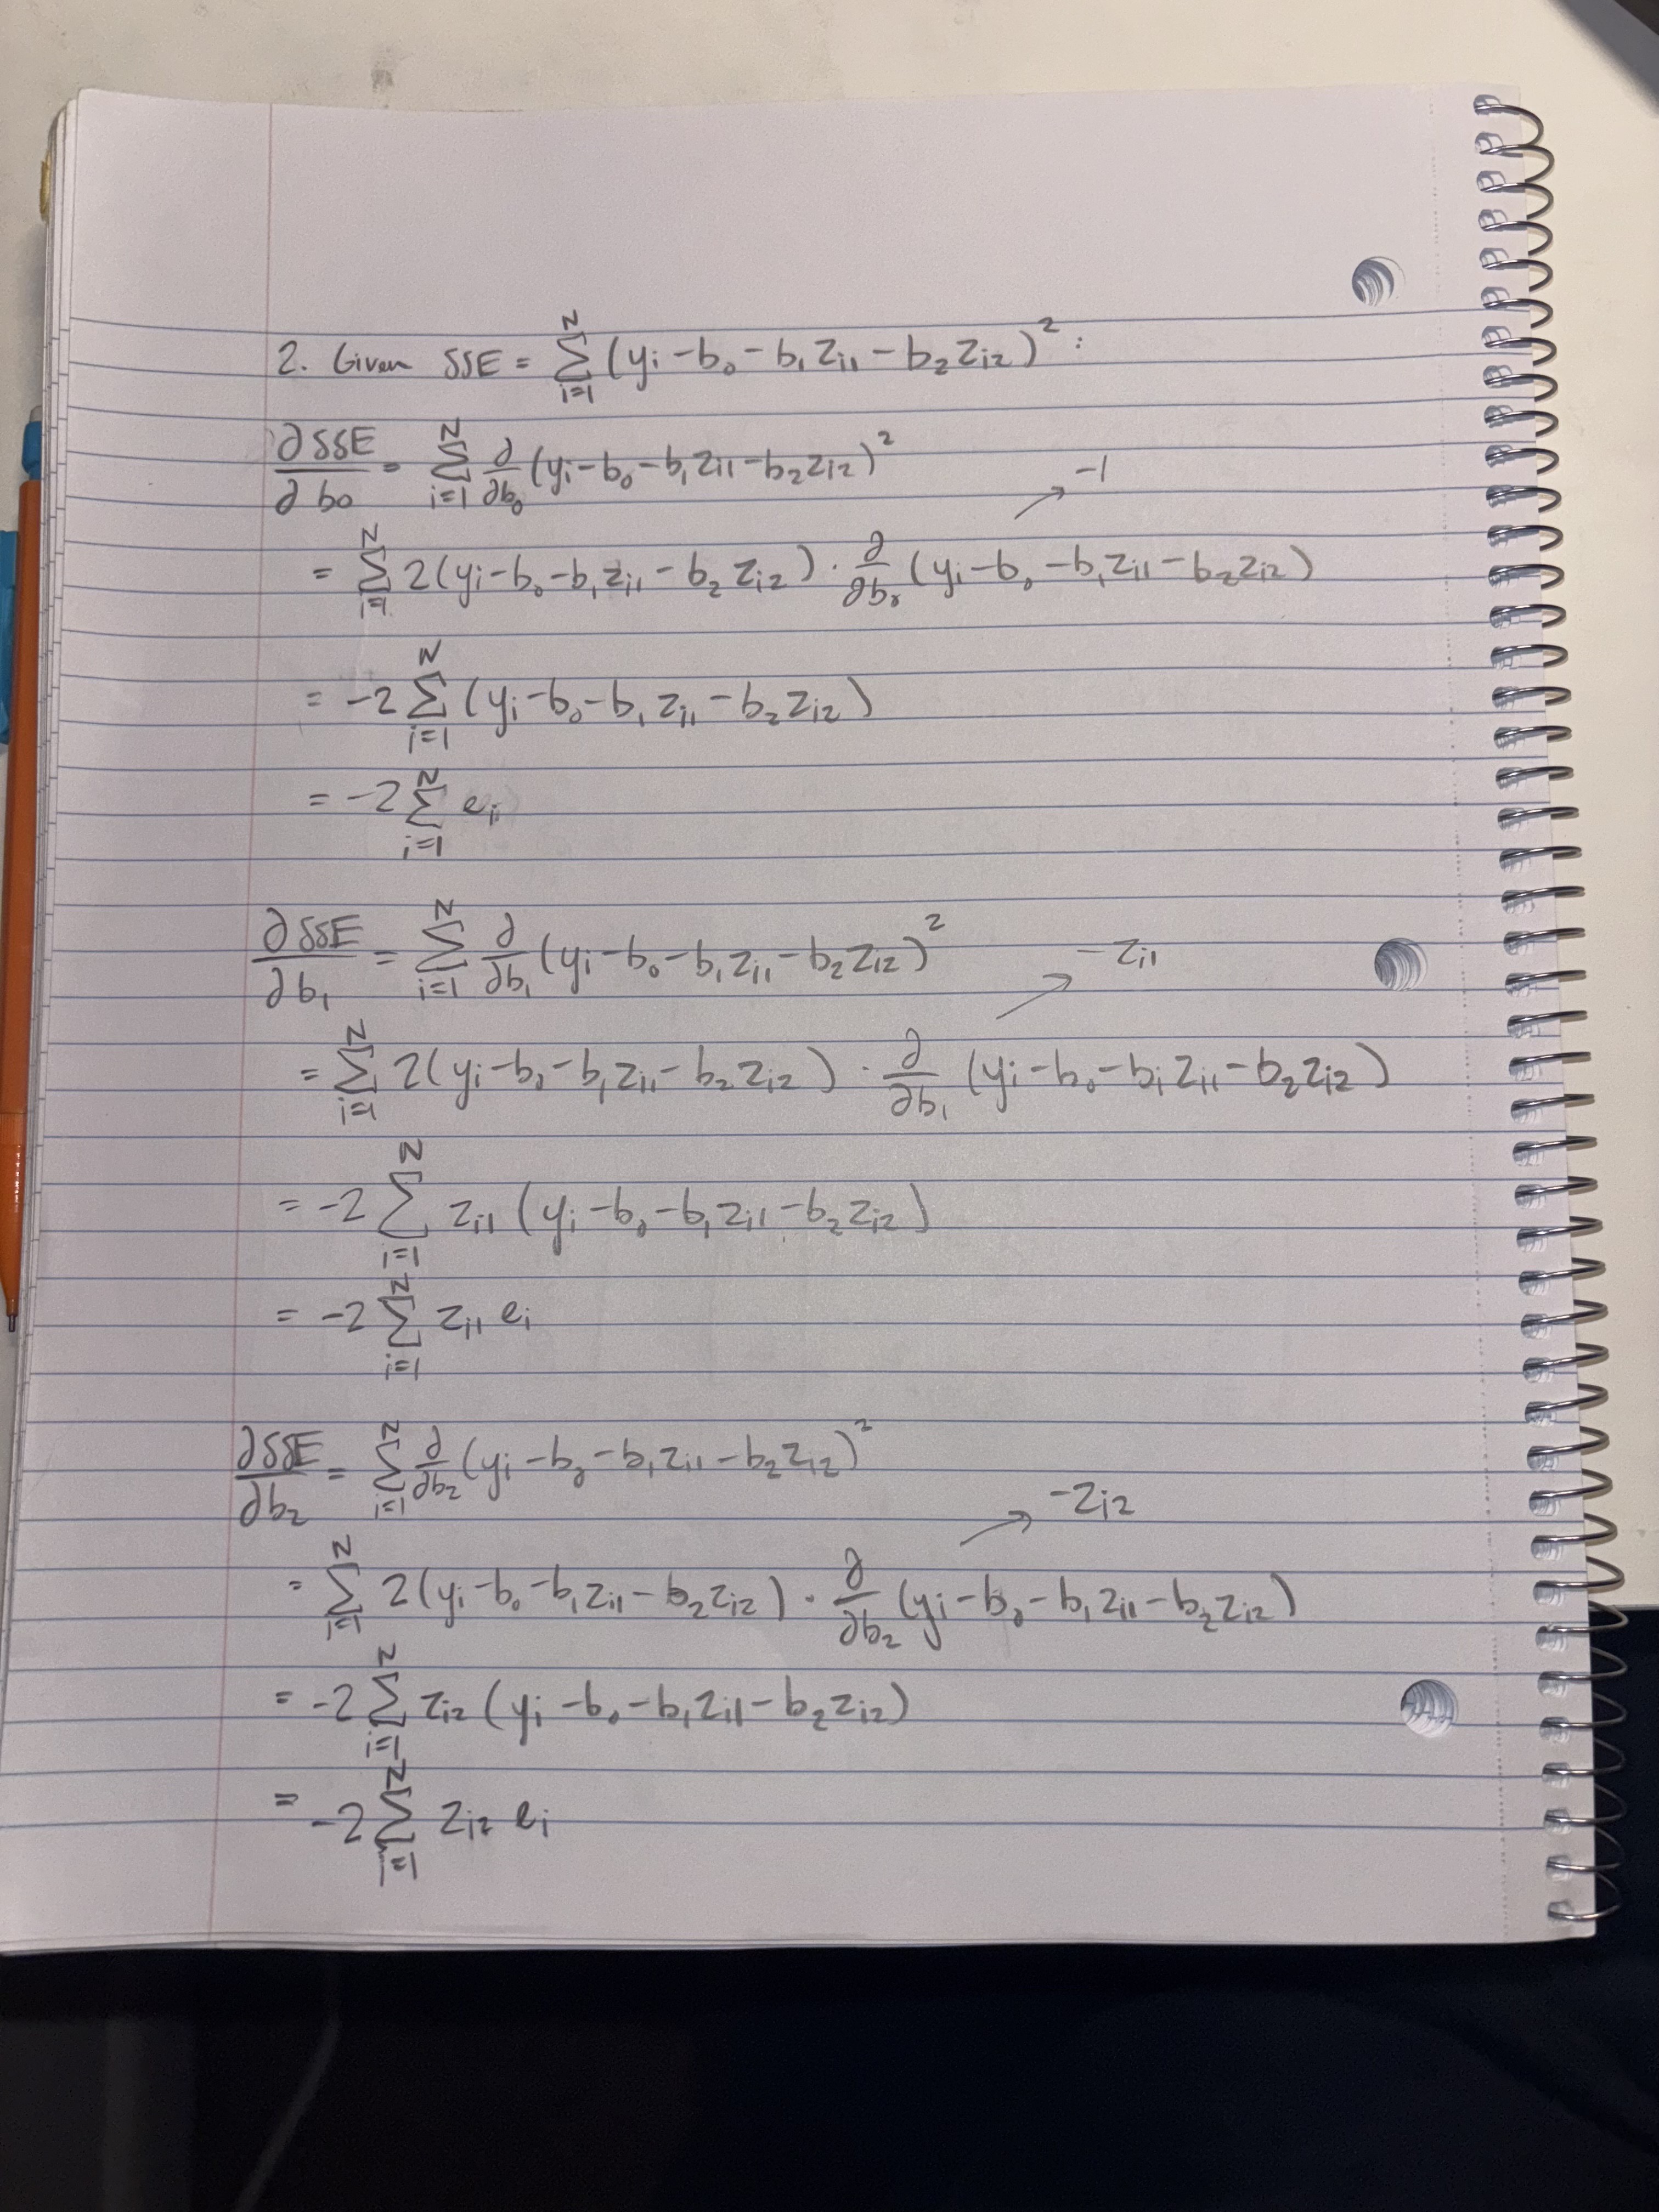 2. Given SSE = \sum_{i=1}^{N} (y_i - b_0 - b_1 z_{i1} - b_2 z_{i2})^2 :
\frac{\partial SSE}{\partial b_0} = \sum_{i=1}^{N} \frac{\partial}{\partial b_0} (y_i - b_0 - b_1 z_{i1} - b_2 z_{i2})^2
→ -1
= \sum_{i=1}^{N} 2(y_i - b_0 - b_1 z_{i1} - b_2 z_{i2}) \cdot \frac{\partial}{\partial b_0} (y_i - b_0 - b_1 z_{i1} - b_2 z_{i2})
= -2 \sum_{i=1}^{N} (y_i - b_0 - b_1 z_{i1} - b_2 z_{i2})
= -2 \sum_{i=1}^{N} e_i
\frac{\partial SSE}{\partial b_1} = \sum_{i=1}^{N} \frac{\partial}{\partial b_1} (y_i - b_0 - b_1 z_{i1} - b_2 z_{i2})^2
→ -z_{i1}
= \sum_{i=1}^{N} 2(y_i - b_0 - b_1 z_{i1} - b_2 z_{i2}) \cdot \frac{\partial}{\partial b_1} (y_i - b_0 - b_1 z_{i1} - b_2 z_{i2})
= -2 \sum_{i=1}^{N} z_{i1} (y_i - b_0 - b_1 z_{i1} - b_2 z_{i2})
= -2 \sum_{i=1}^{N} z_{i1} e_i
\frac{\partial SSE}{\partial b_2} = \sum_{i=1}^{N} \frac{\partial}{\partial b_2} (y_i - b_0 - b_1 z_{i1} - b_2 z_{i2})^2
→ -z_{i2}
= \sum_{i=1}^{N} 2(y_i - b_0 - b_1 z_{i1} - b_2 z_{i2}) \cdot \frac{\partial}{\partial b_2} (y_i - b_0 - b_1 z_{i1} - b_2 z_{i2})
= -2 \sum_{i=1}^{N} z_{i2} (y_i - b_0 - b_1 z_{i1} - b_2 z_{i2})
= -2 \sum_{i=1}^{N} z_{i2} e_i